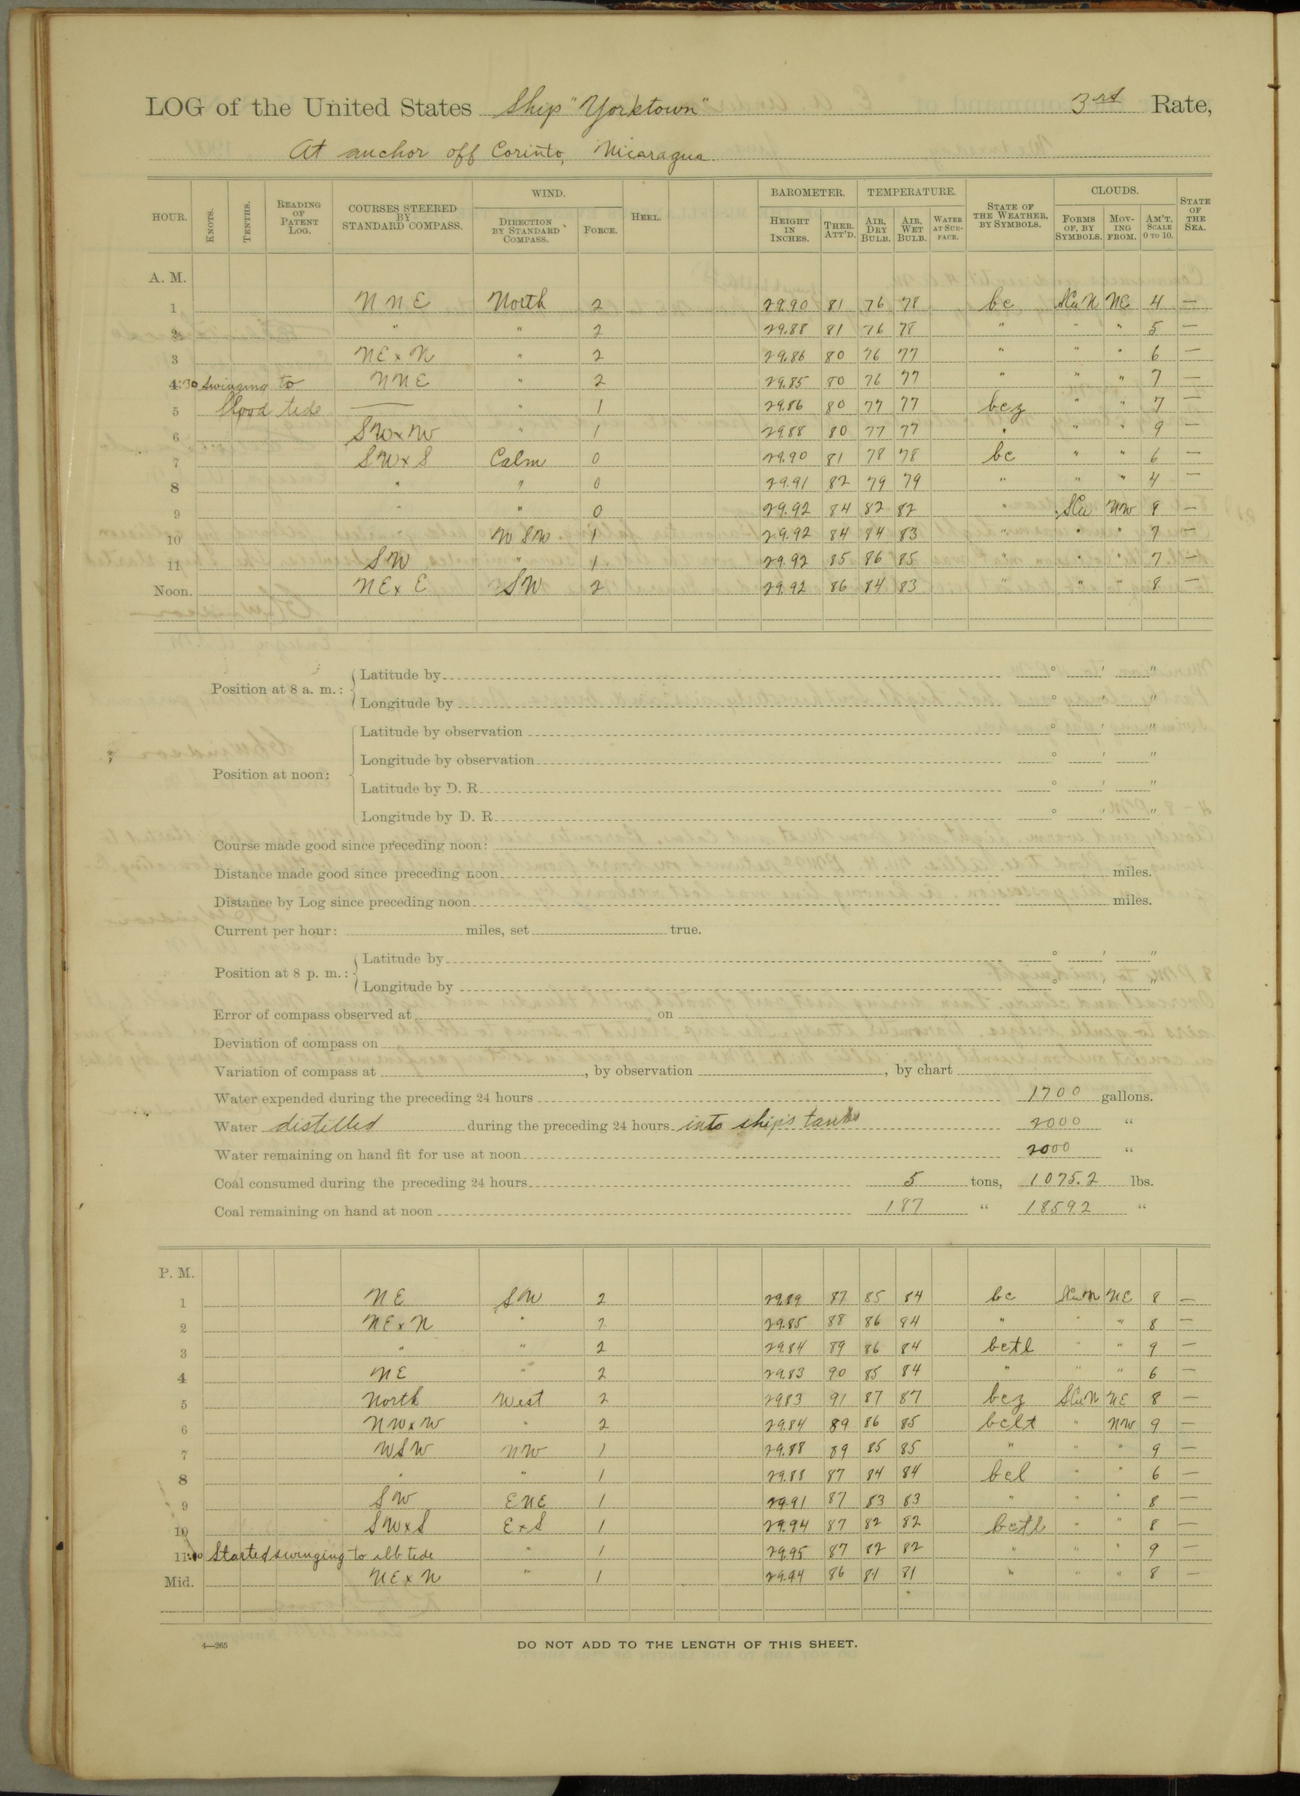 LOG of the United States Ship "Yorktown" 3rd Rate,
At anchor off Corinto, Nicaragua
HOUR. KNOTS. TENTHS. READING OF PATENT LOG. COURSES STEERED BY STANDARD COMPASS. WIND. DIRECTION BY STANDARD COMPASS. FORCE. HEEL. BAROMETER. HEIGHT IN INCHES. THER. ATT'D. TEMPERATURE. AIR, DRY BULB. AIR, WET BULB. WATER AT SURFACE. STATE OF THE WEATHER, BY SYMBOLS. CLOUDS. FORMS OF, BY SYMBOLS. MOVING FROM. AM'T. SCALE 0 TO 10. STATE OF THE SEA.
A. M.
1 NNE North 2 29.90 81 76 78 bc SCuN NE 4 —
2 " " 2 29.88 81 76 78 " " " 5 —
3 NE x N " 2 29.86 80 76 77 " " " 6 —
4:30 swinging to NNE " 2 29.85 80 76 77 " " " 7 —
5 flood tide — " 1 29.86 80 77 77 bcz " " 7 —
6 SW x W " 1 29.88 80 77 77 " " " 9 —
7 SW x S Calm 0 29.90 81 78 78 bc " " 6 —
8 " " 0 29.91 82 79 79 " " " 4 —
9 " " 0 29.92 84 82 82 " SCu NW 8 —
10 WSW 1 29.92 84 84 83 " " " 7 —
11 SW " 1 29.92 85 86 85 " " " 7 —
Noon. NE x E SW 2 29.92 86 84 83 " " " 8 —
Position at 8 a. m.: Latitude by ° ' "
Longitude by ° ' "
Position at noon: Latitude by observation ° ' "
Longitude by observation ° ' "
Latitude by D. R. ° ' "
Longitude by D. R. ° ' "
Course made good since preceding noon:
Distance made good since preceding noon miles.
Distance by Log since preceding noon miles.
Current per hour: miles, set true.
Position at 8 p. m.: Latitude by ° ' "
Longitude by ° ' "
Error of compass observed at on
Deviation of compass on
Variation of compass at , by observation , by chart
Water expended during the preceding 24 hours 1700 gallons.
Water distilled during the preceding 24 hours into ship's tanks 2000 "
Water remaining on hand fit for use at noon 2000 "
Coal consumed during the preceding 24 hours 5 tons, 1075.2 lbs.
Coal remaining on hand at noon 187 " 1859.2 "
P. M.
1 NE SW 2 29.89 87 85 84 bc SCuN NE 8 —
2 NE x N " 2 29.85 88 86 84 " " " 8 —
3 " " 2 29.84 89 86 84 bctl " " 9 —
4 NE " 2 29.83 90 85 84 " " " 6 —
5 North West 2 29.83 91 87 87 bcz SCuN NE 8 —
6 NW x W " 2 29.84 89 86 85 bclt " NW 9 —
7 WSW NW 1 29.88 89 85 85 " " " 9 —
8 " " 1 29.88 87 84 84 bcl " " 6 —
9 SW ENE 1 29.91 87 83 83 " " " 8 —
10 SW x S E x S 1 29.94 87 82 82 bctl " " 8 —
11:10 Started swinging to ebb tide " 1 29.95 87 82 82 " " " 9 —
Mid. NE x N " 1 29.94 86 81 81 " " " 8 —
4—265
DO NOT ADD TO THE LENGTH OF THIS SHEET.